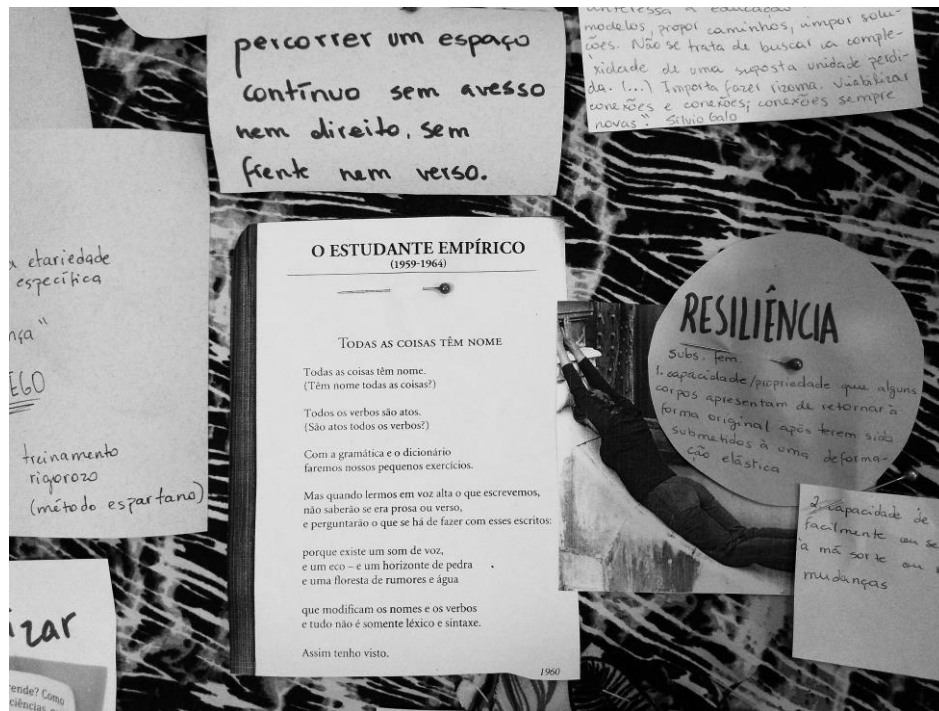 percorrer um espaço
contínuo sem avesso
nem direito, sem
frente nem verso.
interessa à educação
modelos, propor caminhos, impor solu-
ções. Não se trata de buscar a comple-
xidade de uma suposta unidade perdi-
da. (...) Importa fazer rizoma. Viabilizar
conexões e conexões; conexões sempre
novas". Silvio Galo
etariedade
específica
nça"
EGO
treinamento
rigorozo
(método espartano)
izar
ende? Como
ciências
O ESTUDANTE EMPÍRICO
(1959-1964)
TODAS AS COISAS TÊM NOME
Todas as coisas têm nome.
(Têm nome todas as coisas?)
Todos os verbos são atos.
(São atos todos os verbos?)
Com a gramática e o dicionário
faremos nossos pequenos exercícios.
Mas quando lermos em voz alta o que escrevemos,
não saberão se era prosa ou verso,
e perguntarão o que se há de fazer com esses escritos:
porque existe um som de voz,
e um eco – e um horizonte de pedra
e uma floresta de rumores e água
que modificam os nomes e os verbos
e tudo não é somente léxico e sintaxe.
Assim tenho visto.
1960
RESILIÊNCIA
subs. fem.
1. capacidade/propriedade que alguns
corpos apresentam de retornar à
forma original após terem sido
submetidos à uma deforma-
ção elástica
2. capacidade de
facilmente ou se
à má sorte ou
mudanças